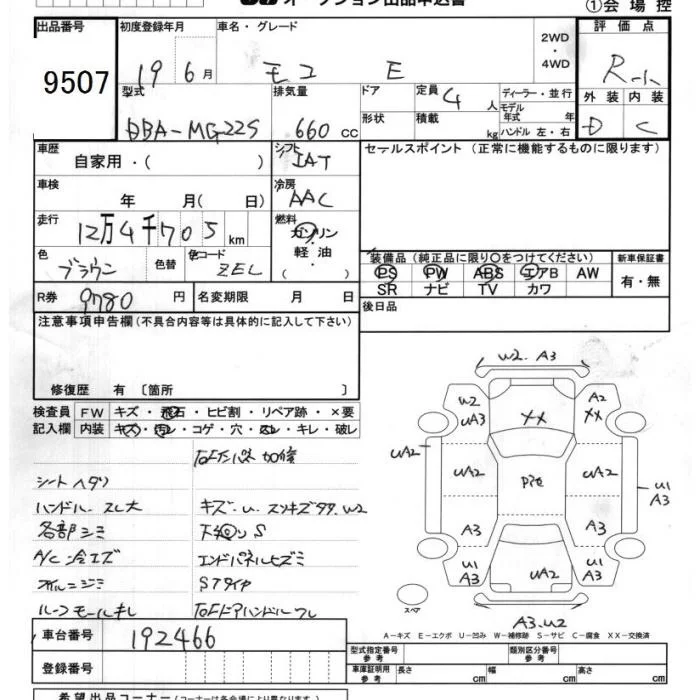 オークション出品申込書
①会場控
出品番号 初度登録年月 車名・グレード 2WD ・ 4WD 評価点
9507 19 6月 モコ E R-ﾄ
型式 排気量 ドア 定員 4 人 ディーラー・並行 外装 内装
DBA-MG22S 660 cc 形状 積載 kg モデル年式 年 ハンドル 左・右 D C
車歴 自家用・( ) シフト IAT セールスポイント（正常に機能するものに限ります）
車検 年 月( 日) 冷房 AAC
走行 12万4千705 km 燃料 ガソリン・軽油・( )
色 ブラウン 色替 色コード ZEL 装備品（純正品に限り○をつけてください） 新車保証書
PS PW ABS エアB AW 有・無
SR ナビ TV カワ
R券 9780 円 名変期限 月 日 後日品
注意事項申告欄（不具合内容等は具体的に記入して下さい）
修復歴 有 〔箇所 〕
検査員 FW キズ・飛石・ヒビ割・リペア跡・×要
記入欄 内装 キズ・汚レ・コゲ・穴・スレ・キレ・破レ
シートヘタリ
ハンドル スレ大 キズ・U・スリキズ多々・W2
各部シミ 下廻り S
A/C 冷エズ エンドパネルヒズミ
オイルニジミ Sタイヤ
ルーフモールキレ
W2. A3
W2 A2
UA3 XX XX
UA2 UA2 Pﾅｾ UA2 U1
A3
A3 A3
U1 U1
A3 UA2 A3
スペア
A3.W2
A－キズ E－エクボ U－凹み W－補修跡 S－サビ C－腐食 XX－交換済
車台番号 192466 型式指定番号 参考 類別区分番号 参考
登録番号 車庫証明用 参考 長さ cm 幅 cm 高さ cm
希望出品コーナー（コーナーは各会場で異なります）